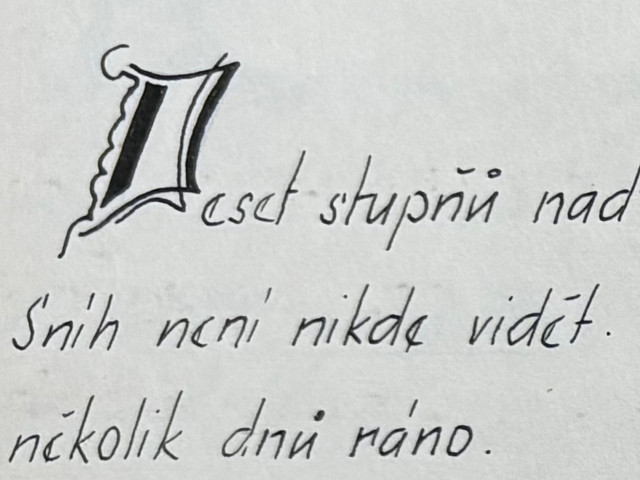 Deset stupňů nad
Sníh není nikde vidět.
několik dnů ráno.